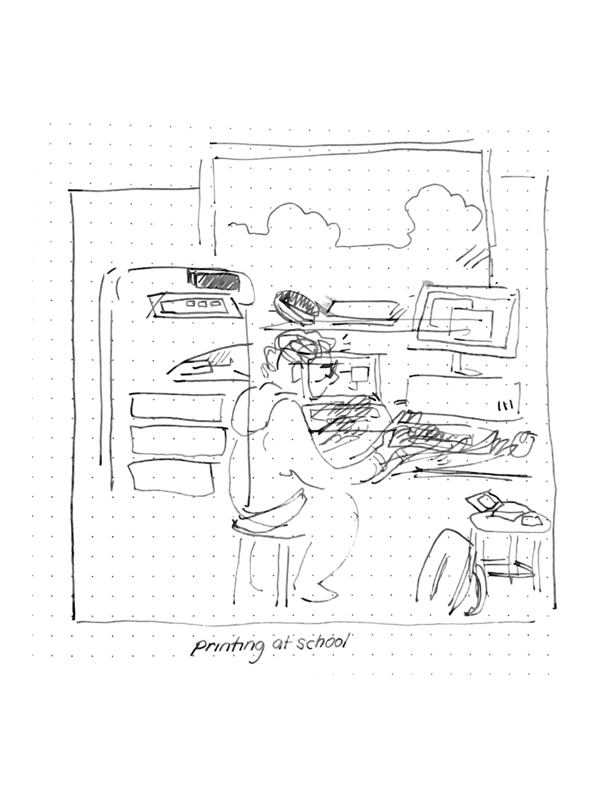 printing at school